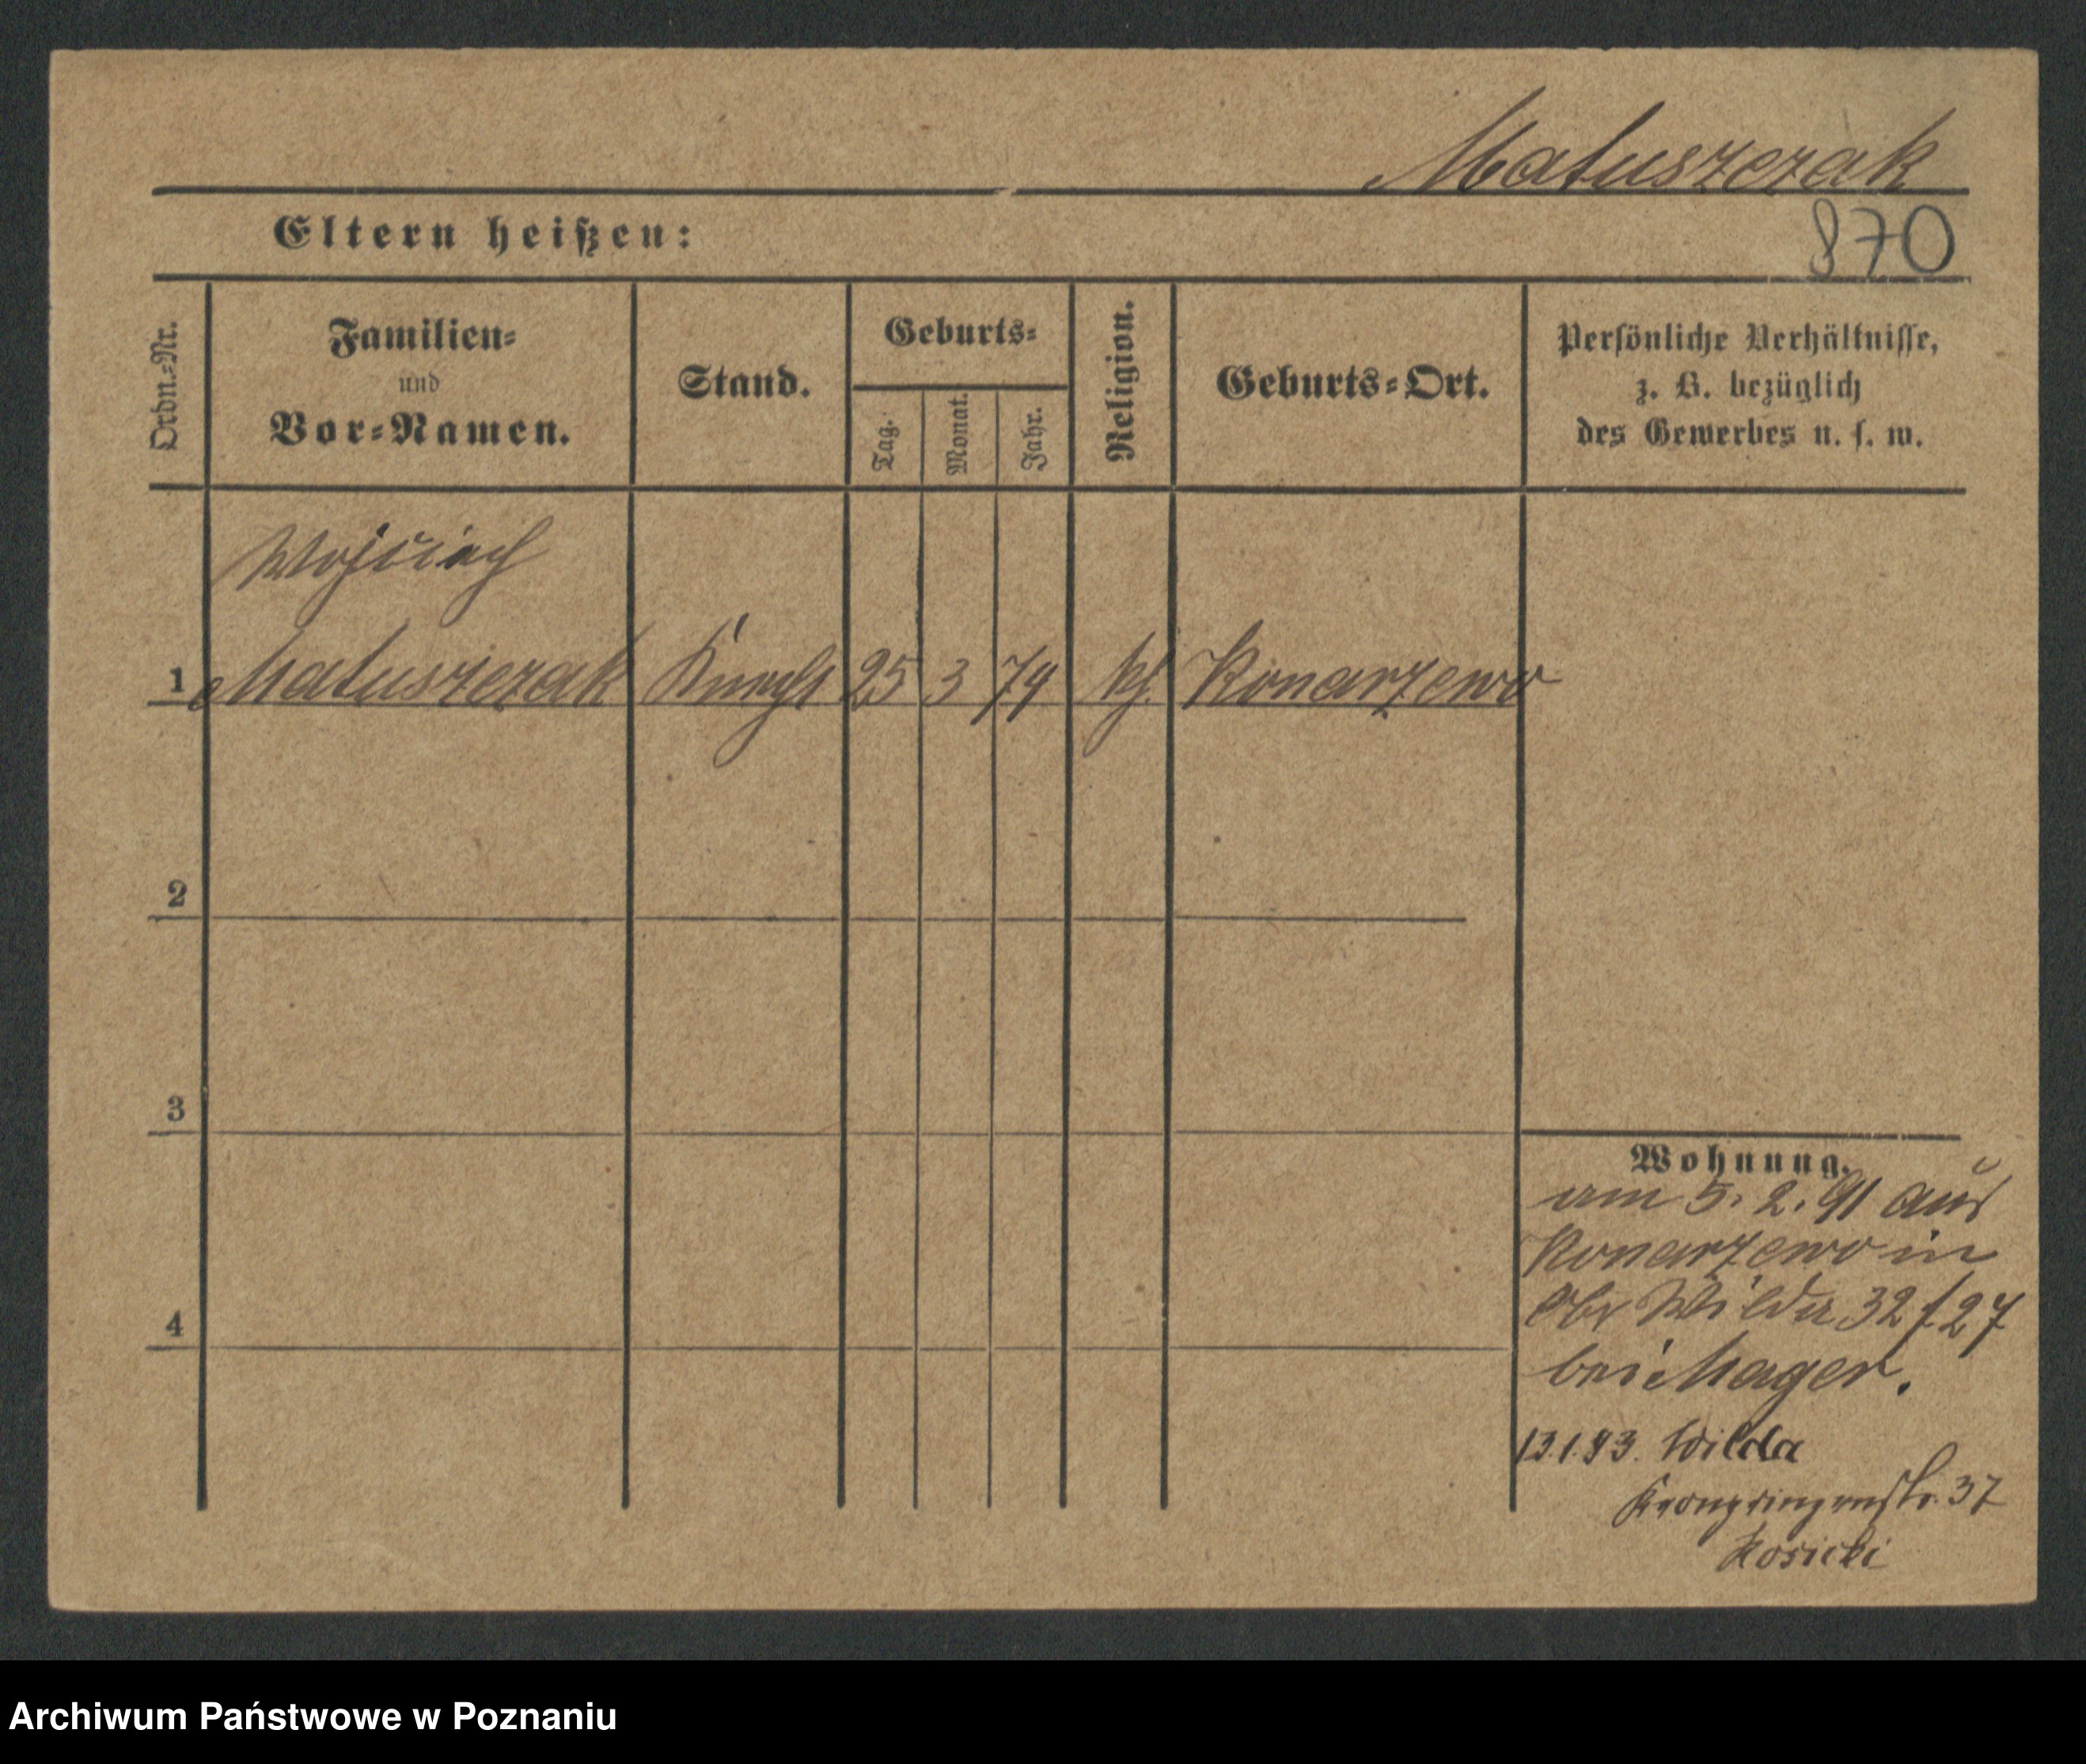 Matuszczak
870
Eltern heißen:
Ordn.-Nr.
Familien-
und
Vor-Namen.
Stand.
Geburts-
Tag.
Monat.
Jahr.
Religion.
Geburts-Ort.
Persönliche Verhältnisse,
z. B. bezüglich
des Gewerbes u. s. w.
Wojciech
1 Matuszczak Knecht 25 3 79 kth. Konarzewo
2
3
4
Wohnung.
am 5. 2. 91 aus
Konarzewo in
Obr Wilda 32 f. 27
bei Mager.
13.1.93. Wilda
Kronprinzenstr. 37
Kosicki
Archiwum Państwowe w Poznaniu